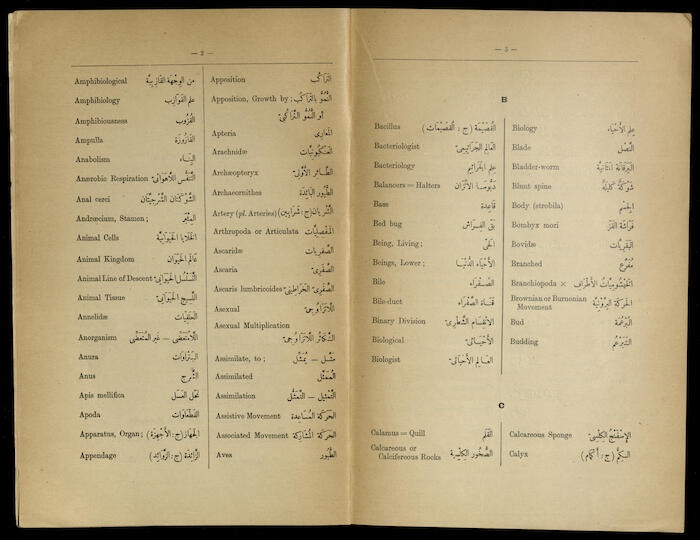 — 2 —
Amphibiological من الوجهة القازبيّة
Amphibiology علم القوازب
Amphibiousness القُزُوب
Ampulla القَارُورَة
Anabolism البناء
Anærobic Respiration التنفّس اللاهوائي
Anal cerci الشوكتان الشرجيّتان
Andrœcium, Stamen;
Animal Cells الخلايا الحيوانيّة
Animal Kingdom عالم الحيوان
Animal Line of Descent التسلسل الحيواني
Animal Tissue النسيج الحيواني
Annelidæ الحلقيّات
Anorganism اللامتعضّي – غير المتعضّي
Anura البتراوات
Anus الشرج
Apis mellifica نحل العسل
Apoda
Apparatus, Organ; الجهاز (ج: الأجهزة)
Appendage الزائدة (ج: الزوائد)
Apposition التراكُب
Apposition, Growth by; النموّ بالتراكُب
أو النموّ التراكبي
Apteria المعاري
Arachnidæ العنكبوتيّات
Archæopteryx الطائر الأوّلي
Archaeornithes الطيور البائدة
Artery (pl. Arteries) الشريان (ج: شرايين)
Arthropoda or Articulata المفصليّات
Ascaridæ الصفريّات
Ascaria الصفري
Ascaris lumbricoides الصفري الخراطيني
Asexual اللاتزاوجي
Asexual Multiplication
التكاثر اللاتزاوجي
Assimilate, to; مثّل – يمثّل
Assimilated المُمَثَّل
Assimilation التمثيل – التمثّل
Assistive Movement الحركة المساعدة
Associated Movement الحركة المشاركة
Aves الطيور
— 3 —
B
Bacillus العُصَيّمة (ج: العُصَيّمات)
Bacteriologist العالم الجراثيمي
Bacteriology علم الجراثيم
Balancers = Halters دبّوسا الاتزان
Base قاعدة
Bed bug بق الفراش
Being, Living; الحيّ
Beings, Lower; الأحياء الدنيا
Bile الصفراء
Bile-duct قناة الصفراء
Binary Division الانقسام الشطري
Biological الأحيائي
Biologist العالم الأحيائي
Biology علم الأحياء
Blade النصل
Bladder-worm اليرقانة المثانيّة
Blunt spine شوكة كليلة
Body (strobila) الجسم
Bombyx mori فراشة القزّ
Bovidæ البقريّات
Branched مُفَرَّع
Branchiopoda × الخيشوميّات الأطراف
Brownian or Burnonian
Movement الحركة البرونيّة
Bud البرعمة
Budding التبرعم
C
Calamus = Quill القلم
Calcareous or
Calcifereous Rocks الصخور الكلسيّة
Calcareous Sponge الإسفنج الكلسي
Calyx الكمّ (ج: أكمام)